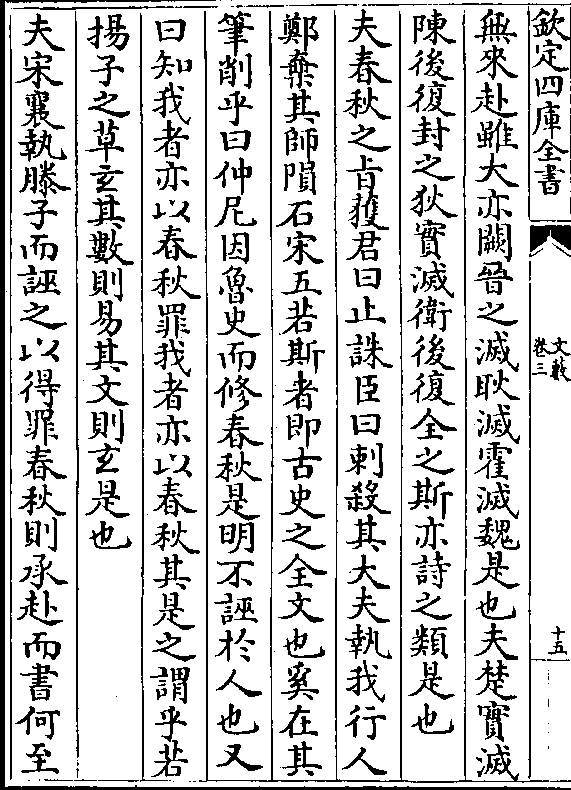 欽定四庫全書
文藪
卷三
十五
無來赴雖大亦闕晉之滅耿滅霍滅魏是也夫楚實滅
陳後復封之狄實滅衛後復全之斯亦詩之類是也
夫春秋之旨獲君曰止誅臣曰刺殺其大夫執我行人
鄭棄其師隕石宋五若斯者即古史之全文也奚在其
筆削乎曰仲尼因魯史而修春秋是明不誣於人也又
曰知我者亦以春秋罪我者亦以春秋其是之謂乎若
揚子之草玄其數則易其文則玄是也
夫宋襄執滕子而誣之以得罪春秋則承赴而書何至